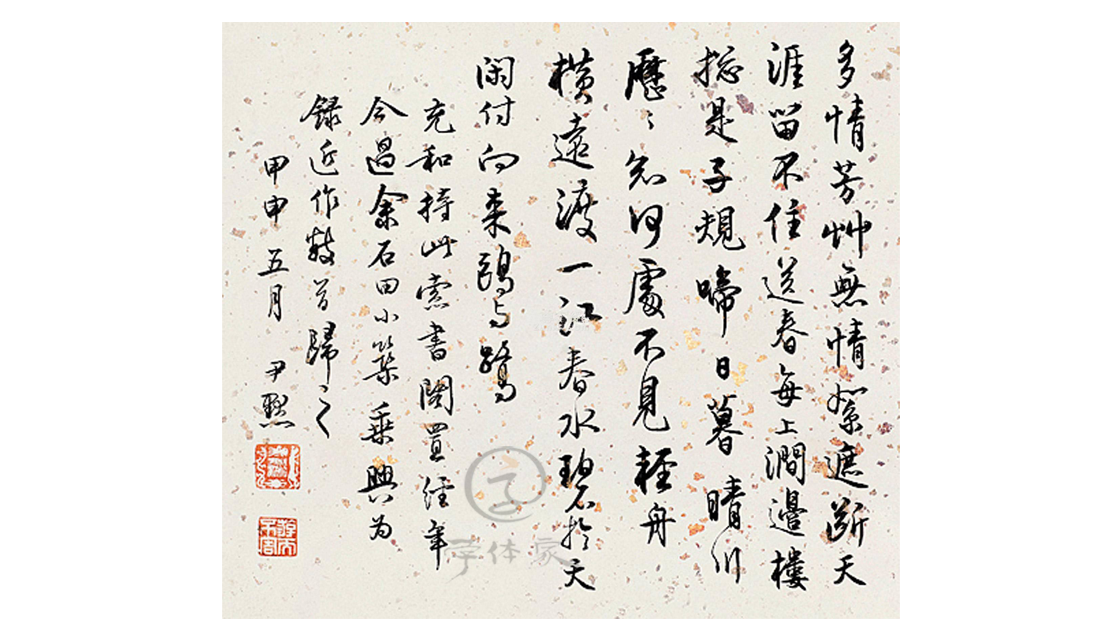 多情芳艸無情絮遮斷天
涯留不住送春每上澗邊樓
揔是子規啼日暮 晴川
歷〻知何處不見輕舟
橫遠渡一江春水碧於天
閑付向來鷗与鷺
充和持此索書閣置經年
今過余石田小築乘興为
録近作數首歸之
甲申五月 尹默
字体家